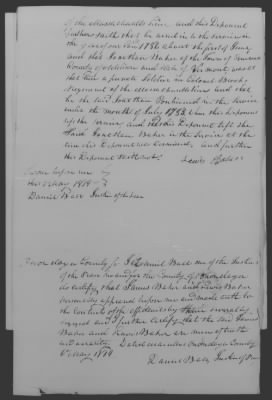 of the Massachusetts Line and this Deponent
further saith that he went in to the service in
the year of our Lord 1780 about the first of June
and that Jonathan Baker of the Town of
County of and State of Vermont was at
that time a private Soldier in Colonel Brooks
Regiment of the Massachusetts and that
he the said Jonathan Continued in the service
until the month of July 1783 when this deponent
left the service, and this Deponent left the
said Jonathan Baker in the service at the
time this Deponent was Discharged, and further
this Deponent saith not
Lewis Baker
Sworn before me
this 6 May 1818
Daniel Ball Justice of the peace
Onondaga County Ss I Daniel Ball one of the Justices
of the Peace in and for the County of Onondaga
do certify that James Baker and Lewis Baker
personally appeared before me and made oath to
the contents of the affidavits they severally
signed and I further certify that the said James
Baker and Lewis Baker are men of truth
and veracity Dated Onondaga County
6th May 1818
Daniel Ball Justice of Peace